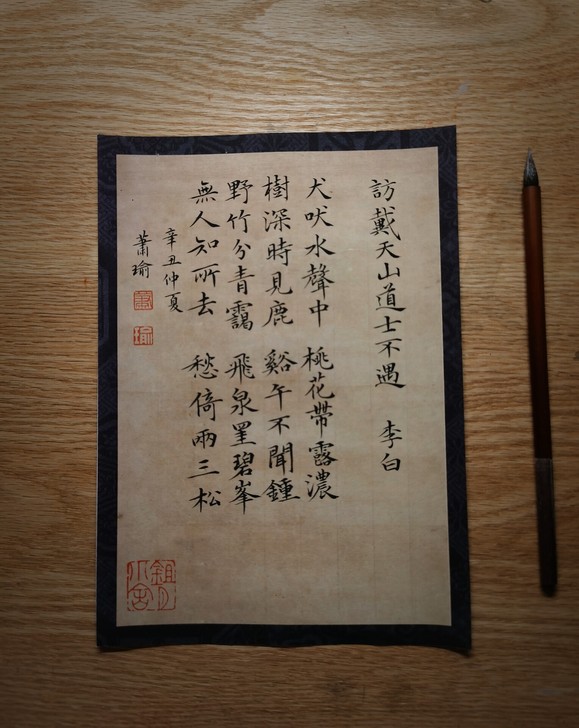 訪戴天山道士不遇 李白
犬吠水聲中 桃花帶露濃
樹深時見鹿 谿午不聞鍾
野竹分青靄 飛泉罣碧峯
無人知所去 愁倚兩三松
辛丑仲夏
蕭瑜
蕭
瑜